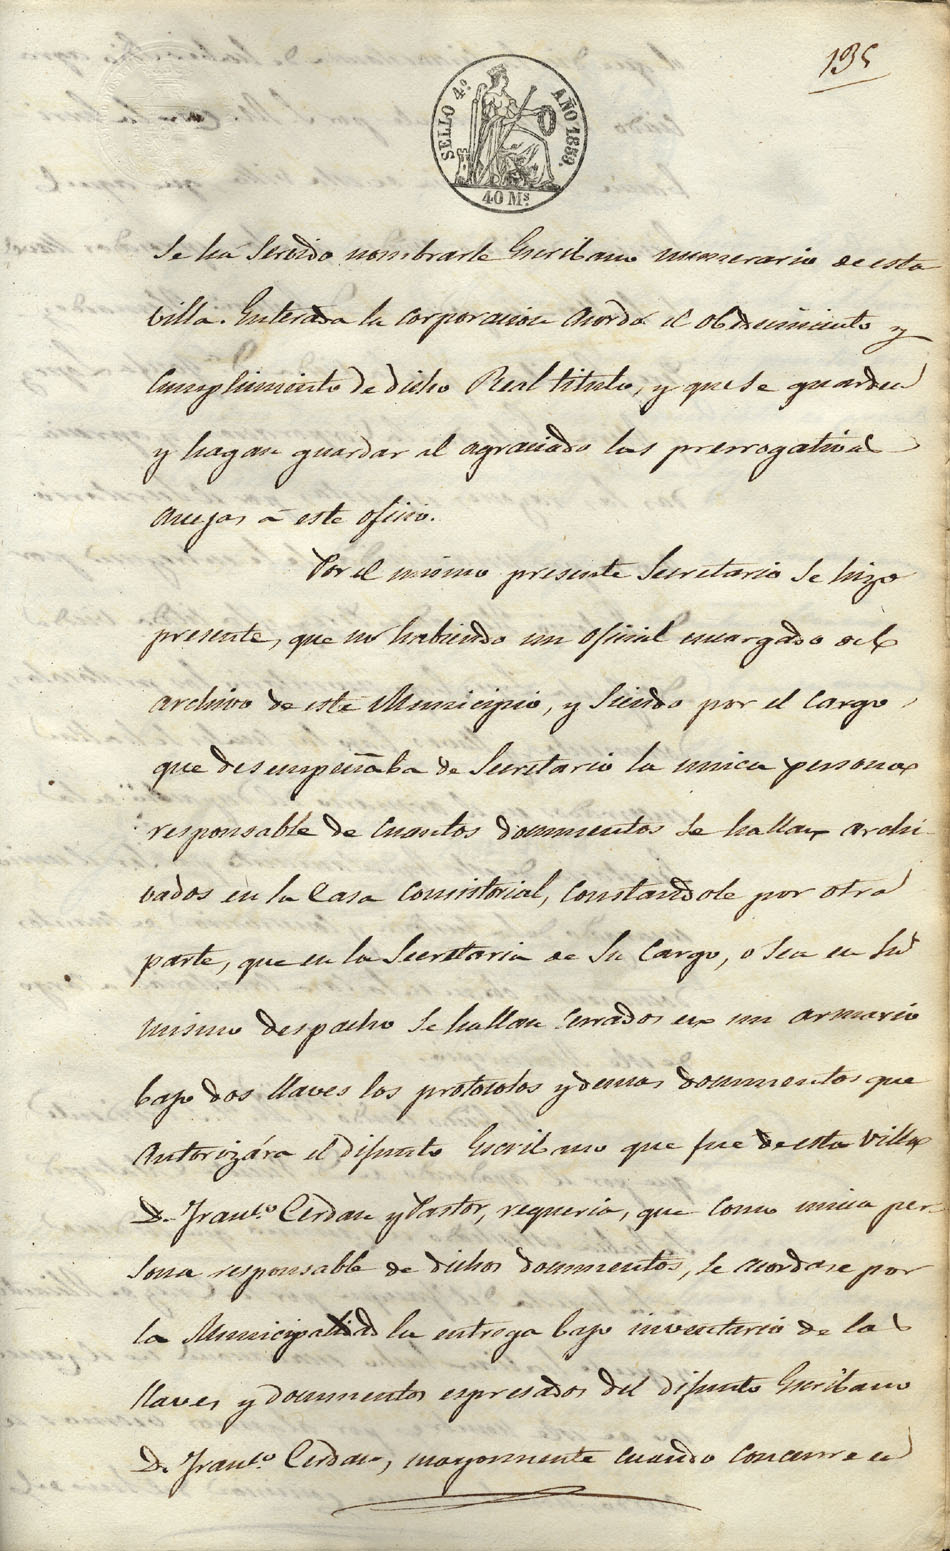 135
SELLO 4º. AÑO 1859.
40 Ms.
Se há servido nombrarle Escribano numerario de esta
villa. Enterada la corporacion acordó el obedecimiento y
cumplimiento de dicho Real titulo, y que se guarden
y hagan guardar al agraciado las prerrogativas
anejas á este oficio.
Por el mismo presente Secretario se hizo
presente, que no habiendo un oficial encargado del
archivo de este Municipio, y siendo por el cargo
que desempeñaba de Secretario la unica persona
responsable de cuantos documentos se hallan archi-
vados en la Casa consistorial, constandole por otra
parte, que en la Secretaria de su cargo, o sea en su
mismo despacho se hallan cerrados en un armario
bajo dos llaves los protocolos y demas documentos que
autorizára el difunto Escribano que fue de esta villa
D. Franco. Cerdan y Pastor, requeria, que como unica per-
sona responsable de dichos documentos, se acordase por
la Municipalidad la entrega bajo inventario de las
llaves y documentos espresados del difunto Escribano
D. Franco. Cerdan, mayormente cuando concurre en